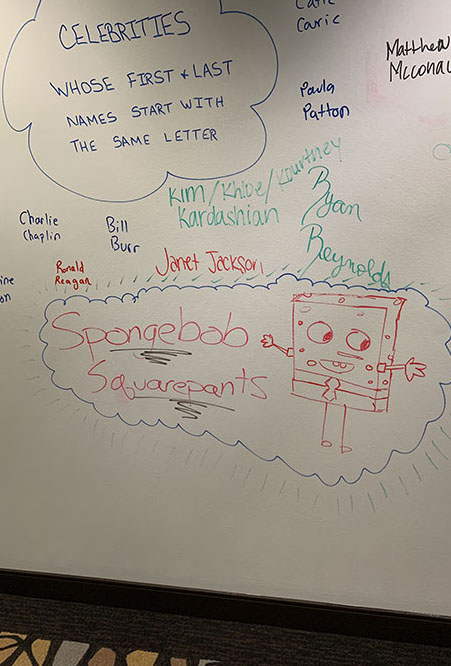 CELEBRITIES
WHOSE FIRST + LAST
NAMES START WITH
THE SAME LETTER
Matthew
Paula
Patton
Kim/Khloe/Kourtney
Kardashian
Ryan
Reynolds
Charlie
Chaplin
Bill
Burr
Ronald
Reagan
Janet Jackson
Spongebob
Squarepants